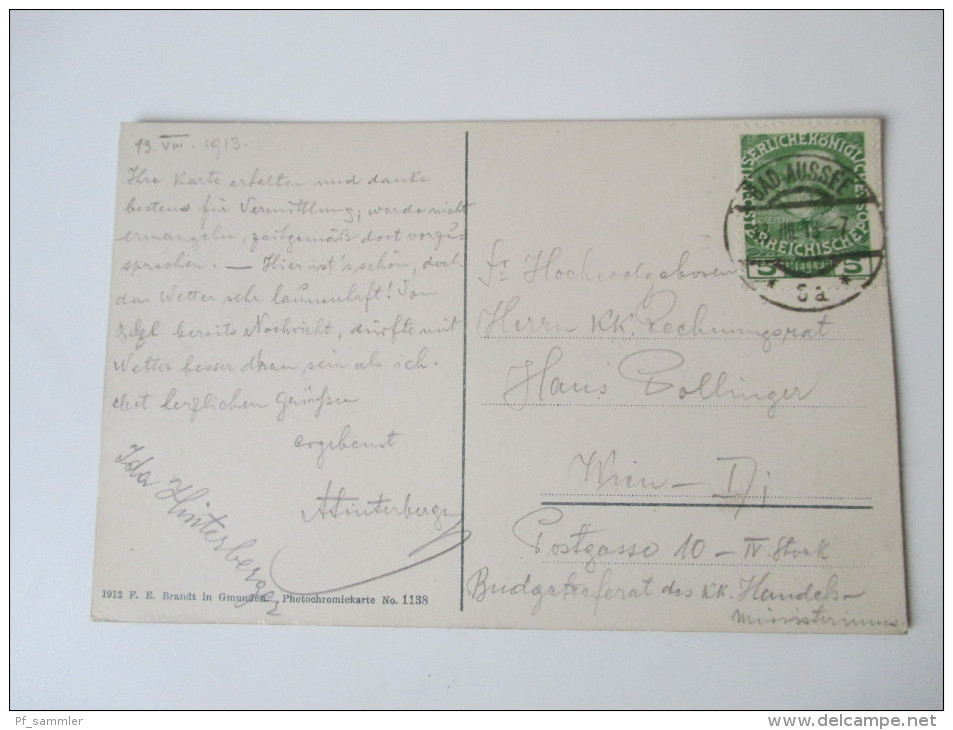 13. VIII. 1913.
Ihre Karte erhalten und danke
bestens für Vermittlung, werde nicht
ermangeln, zeitgemäß dort vorzu-
sprechen. — Hier ist's schön, doch
das Wetter sehr launenhaft! Von
bereits Nachricht, dürfte mit
Wetter besser d'ran sein als ich.
Mit herzlichen Grüßen
ergebenst
AHinterberger
Ida Hinterberger
1912 F. E. Brandt in Gmunden. Photochromiekarte No. 1138
KAISERLICHE KÖNIGLICHE
ÖSTERREICHISCHE POST
5 5
BAD AUSSEE
* 3a *
Sr. Hochwolgeboren
Herrn KK. Rechnungsrat
Hans Pollinger
Wien – I/1
Postgasse 10 – IV. Stock
Budgetreferat des KK. Handels-
ministeriums
Pf_sammler
www.delcampe.net